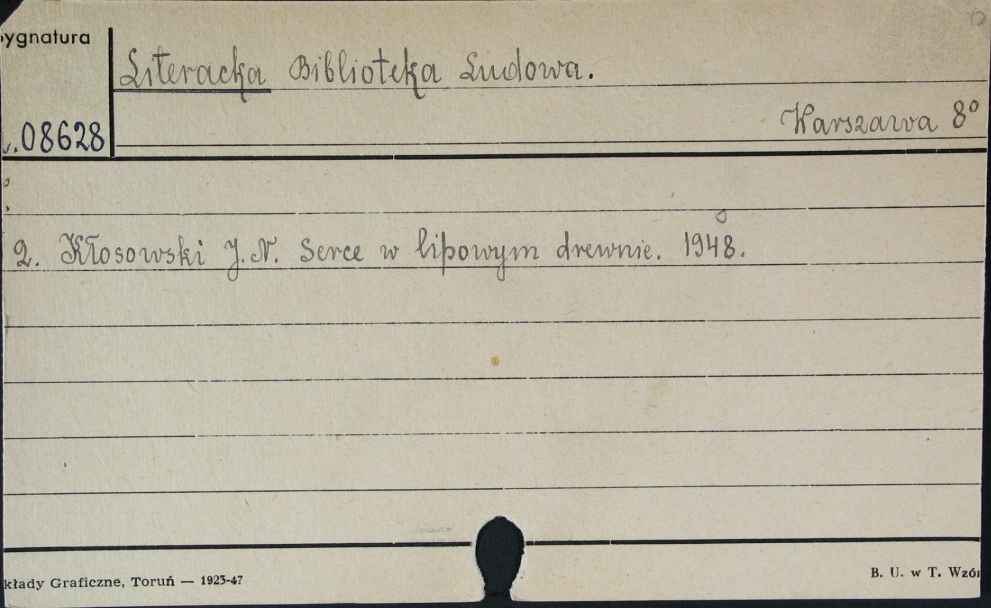 ygnatura
Literacka Biblioteka Ludowa.
Warszawa 8°
.08628
2. Kłosowski J. N. Serce w lipowym drewnie. 1948.
kłady Graficzne, Toruń — 1923-47
B. U. w T. Wzór